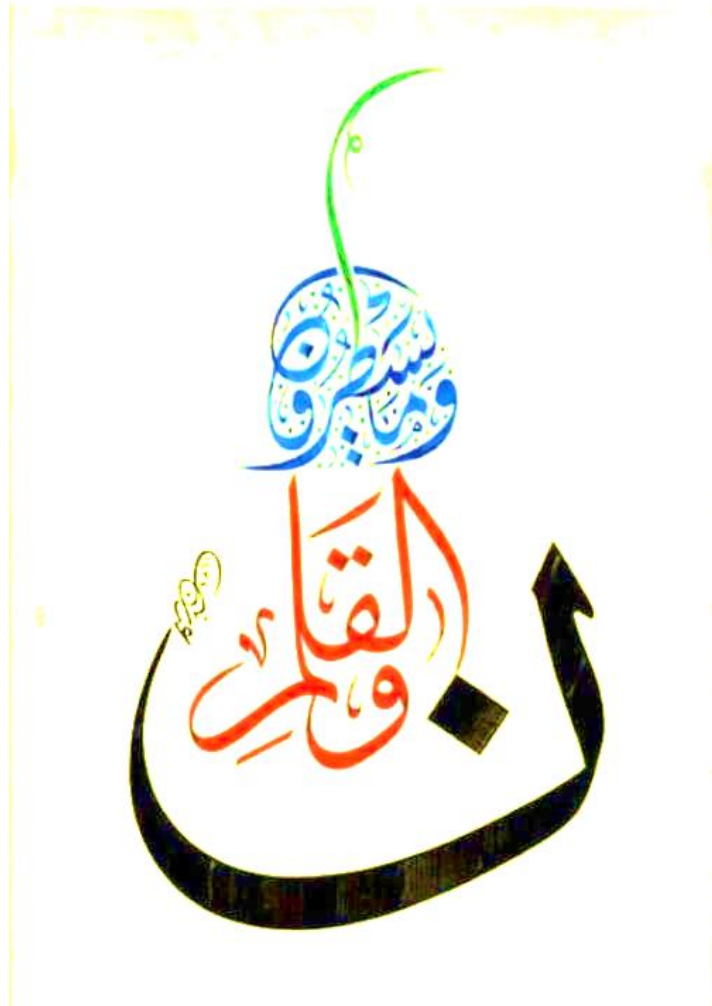 ن
وَالْقَلَمِ
وَمَا يَسْطُرُونَ